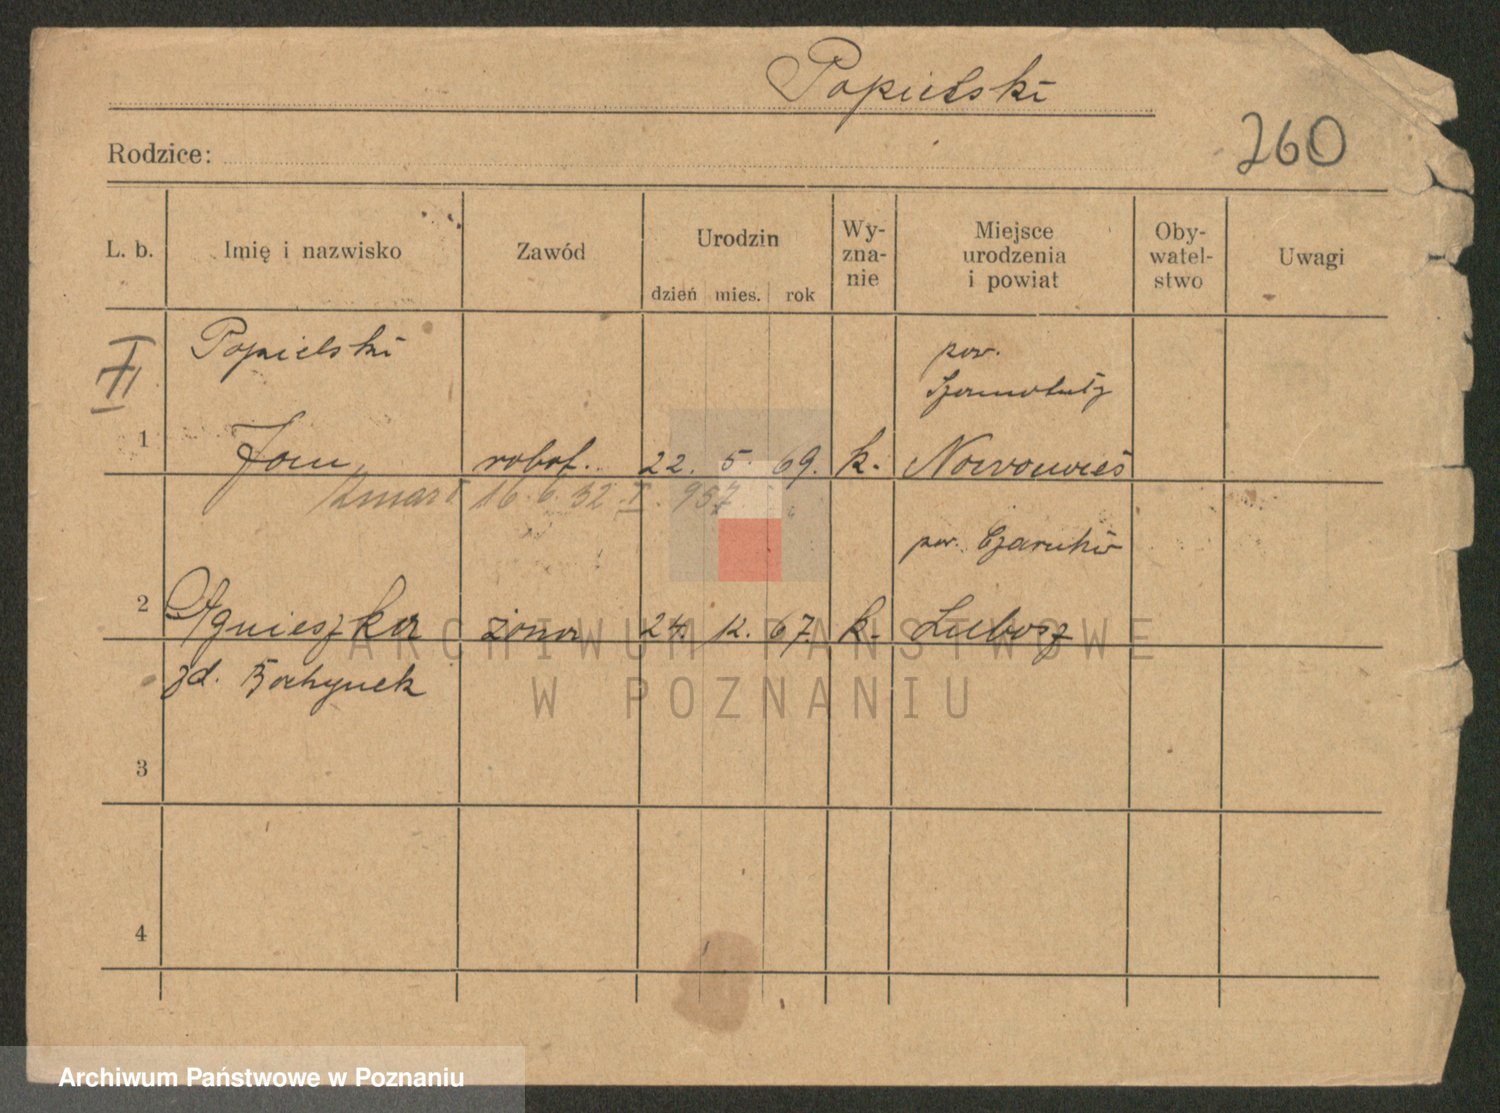 Popielski
260
Rodzice:
L. b. Imię i nazwisko Zawód Urodzin dzień mies. rok Wy-zna-nie Miejsce urodzenia i powiat Oby-watel-stwo Uwagi
Popielski pow.
Szamotuły
1 Jan robot. 22. 5. 69. k. Nowawieś
zmarł 16. 6. 32 I. 957
pow. Czarnków
2 Agnieszka żona 24. 12. 67. k. Lubosz
zd.
3
4
ARCHIWUM PAŃSTWOWE
W POZNANIU
Archiwum Państwowe w Poznaniu